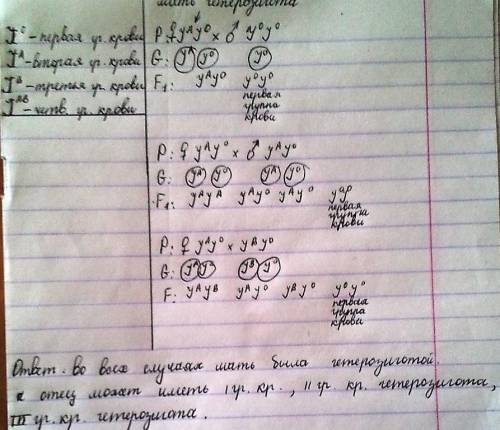 мать гетерозигота
J⁰ - первая гр. крови
Jᴬ - вторая гр. крови
Jᴮ - третья гр. крови
Jᴬᴮ - четв. гр. крови
P: ♀ yᴬy⁰ × ♂ y⁰y⁰
G: yᴬ y⁰ y⁰
F₁: yᴬy⁰ y⁰y⁰
первая
группа
крови
P: ♀ yᴬy⁰ × ♂ yᴬy⁰
G: yᴬ y⁰ yᴬ y⁰
F₁: yᴬyᴬ yᴬy⁰ yᴬy⁰ y⁰y⁰
первая
группа
крови
P: ♀ yᴬy⁰ × yᴮy⁰
G: yᴬ y⁰ yᴮ y⁰
F: yᴬyᴮ yᴬy⁰ yᴮy⁰ y⁰y⁰
первая
группа
крови
Ответ: во всех случаях мать была гетерозиготой.
а отец может иметь I гр. кр., II гр. кр. гетерозигота,
III гр. кр. гетерозигота.